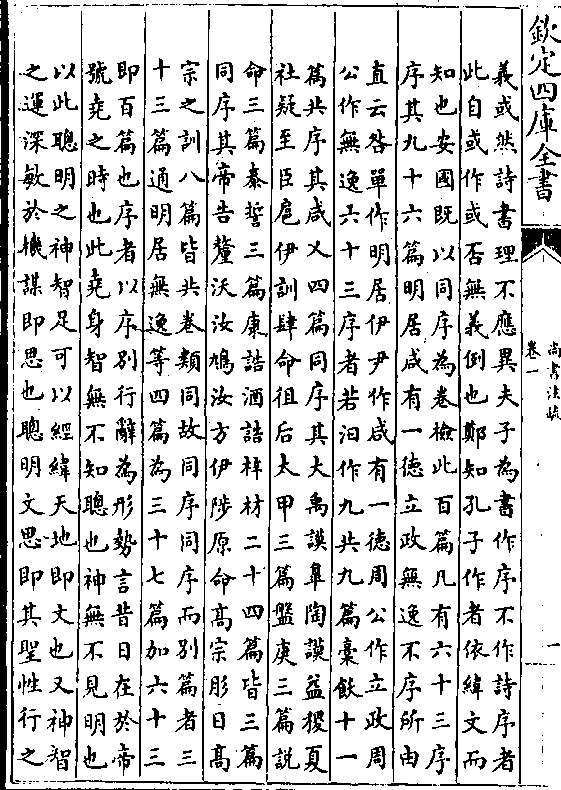 欽定四庫全書
尚書注疏
卷一
一
義或然詩書理不應異夫子為書作序不作詩序者
此自或作或否無義例也鄭知孔子作者依緯文而
知也安國既以同序為卷檢此百篇凡有六十三序
序其九十六篇明居咸有一德立政無逸不序所由
直云咎單作明居伊尹作咸有一德周公作立政周
公作無逸六十三序者若汩作九共九篇槀飫十一
篇共序其咸乂四篇同序其大禹謨皐陶謨益稷夏
社疑至臣扈伊訓肆命徂后太甲三篇盤庚三篇說
命三篇泰誓三篇康誥酒誥梓材二十四篇皆三篇
同序其帝告釐沃汝鳩汝方伊陟原命高宗肜日高
宗之訓八篇皆共卷類同故同序同序而別篇者三
十三篇通明居無逸等四篇為三十七篇加六十三
即百篇也序者以序別行辭為形勢言昔日在於帝
號堯之時也此堯身智無不知聰也神無不見明也
以此聰明之神智足可以經緯天地即文也又神智
之運深敏於機謀即思也聰明文思即其聖性行之